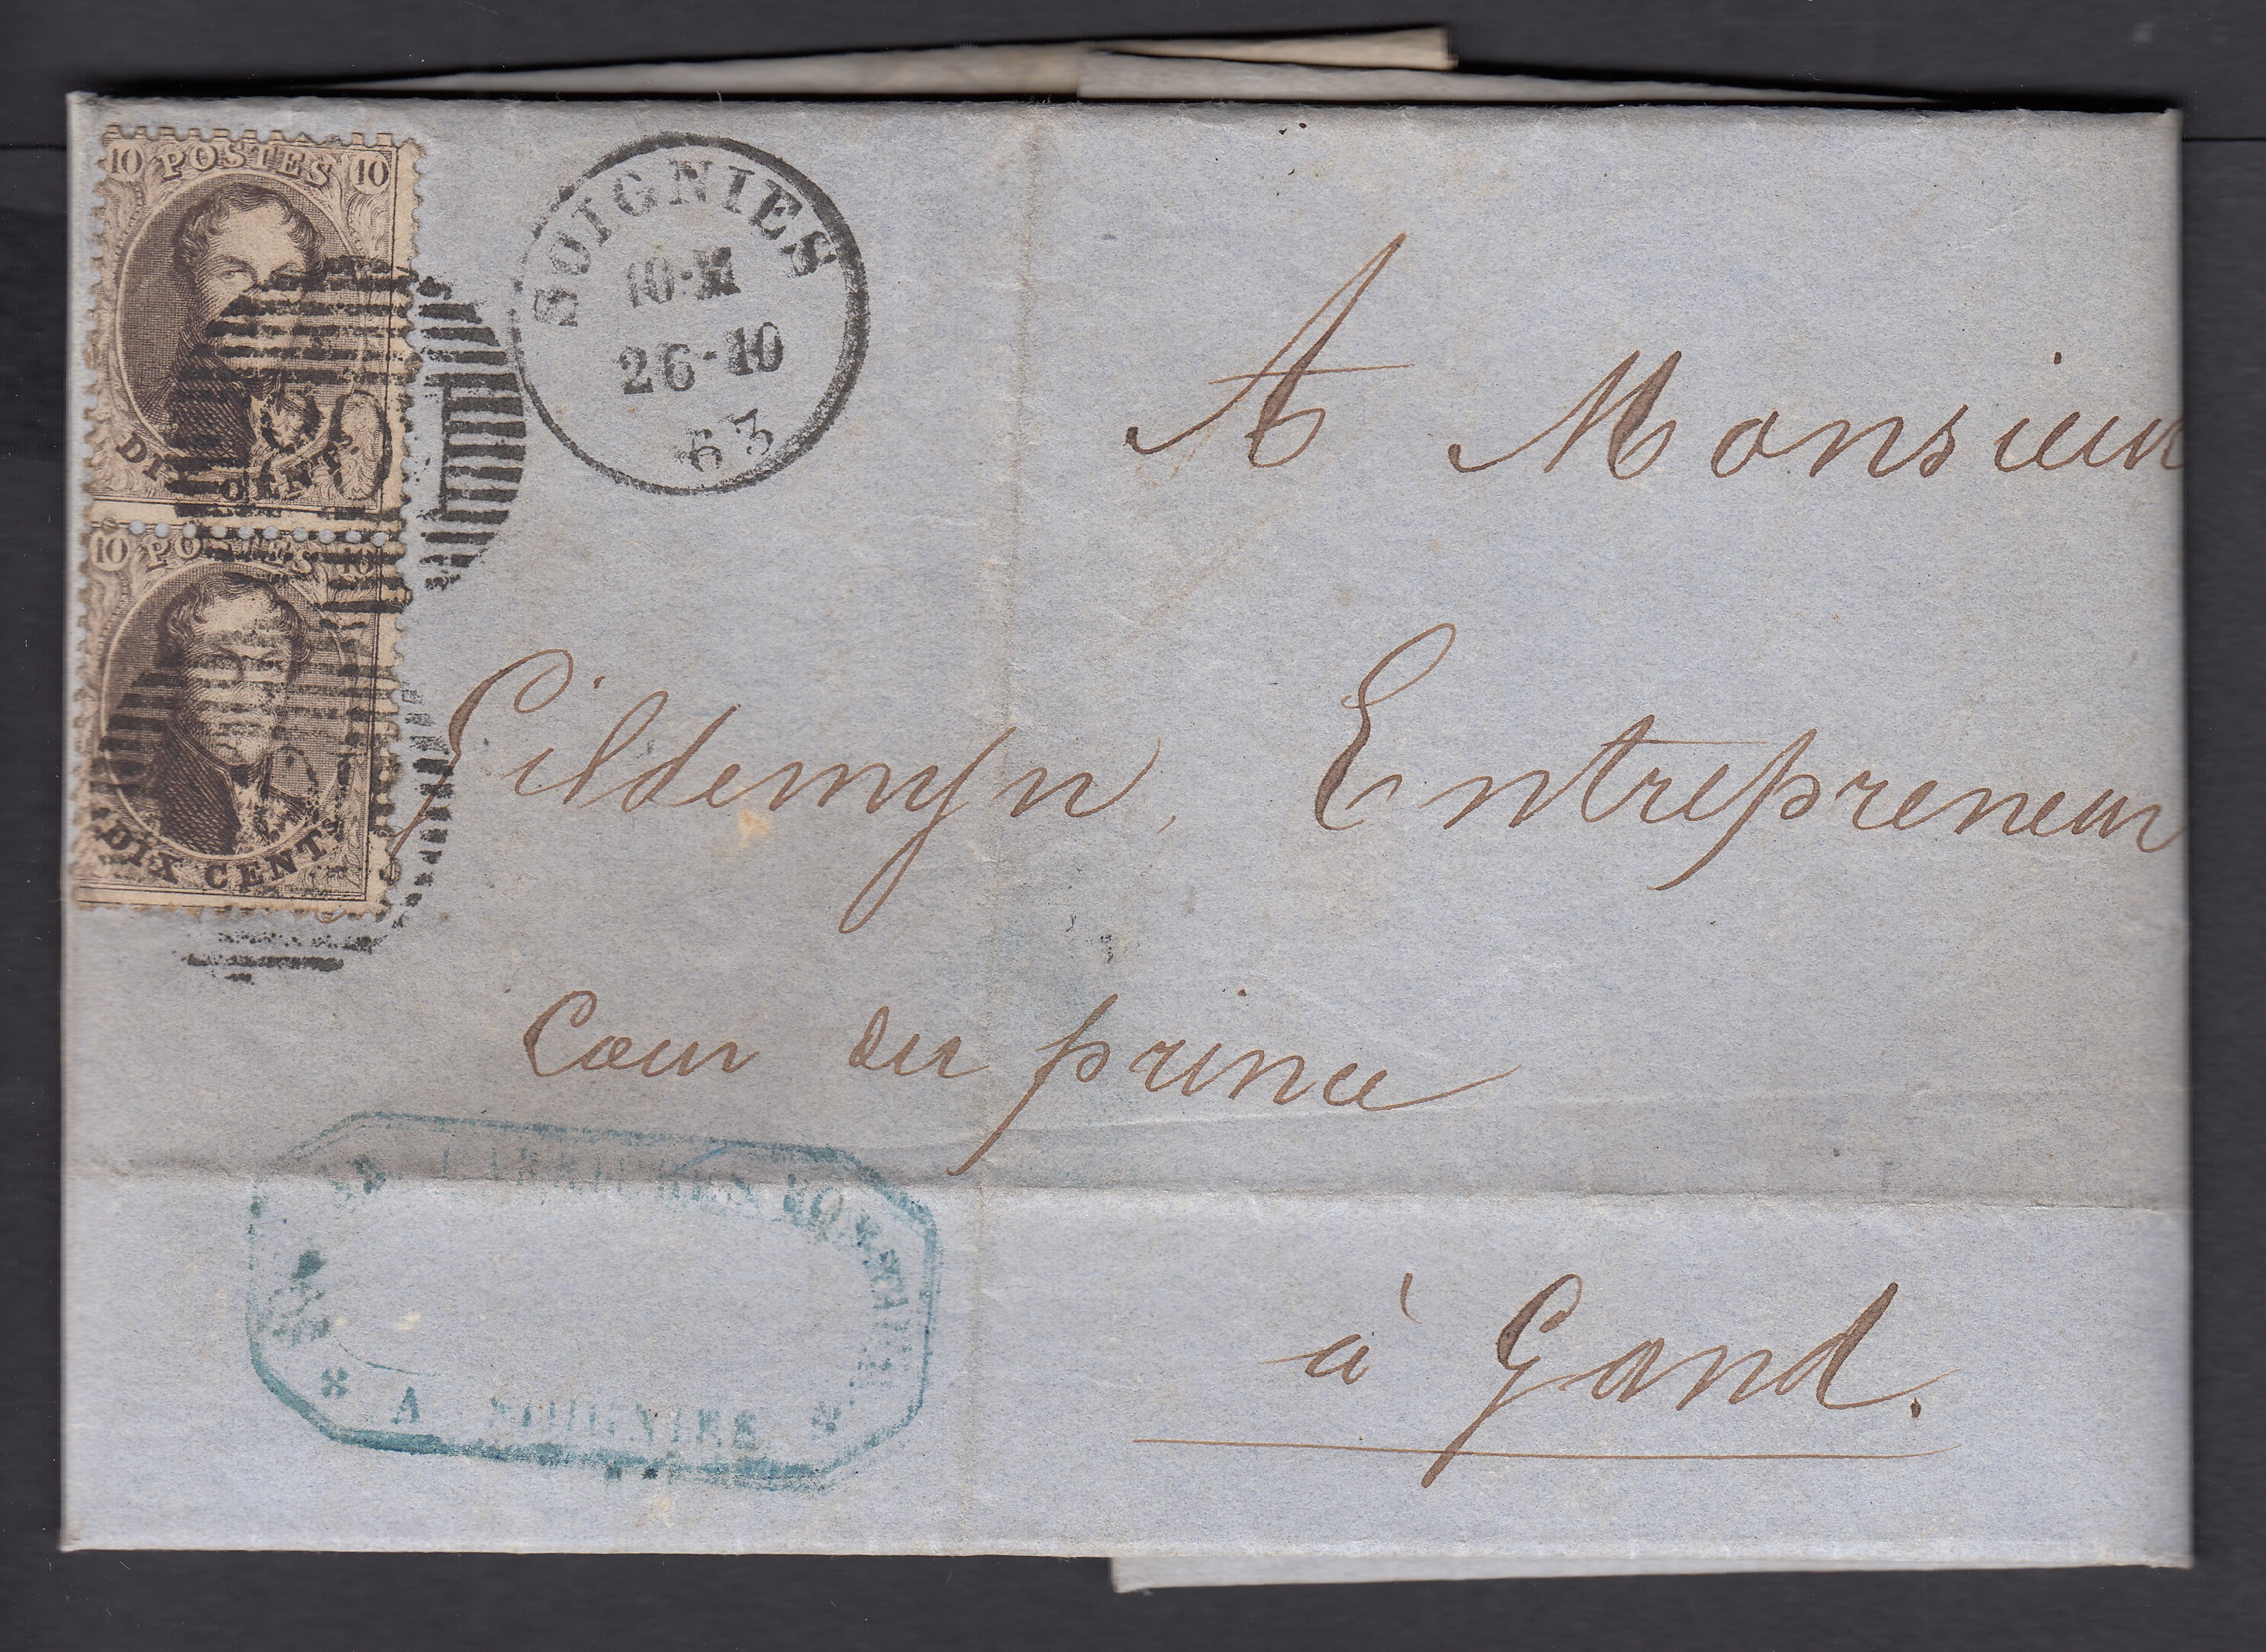 10 POSTES 10
DIX CENTS
10 POSTES 10
DIX CENTS
SOIGNIES
10-M
26-10
63
A Monsieur
Gildemyn, Entrepreneur
Cour du prince
à Gand.
CARRIERES
A SOIGNIES